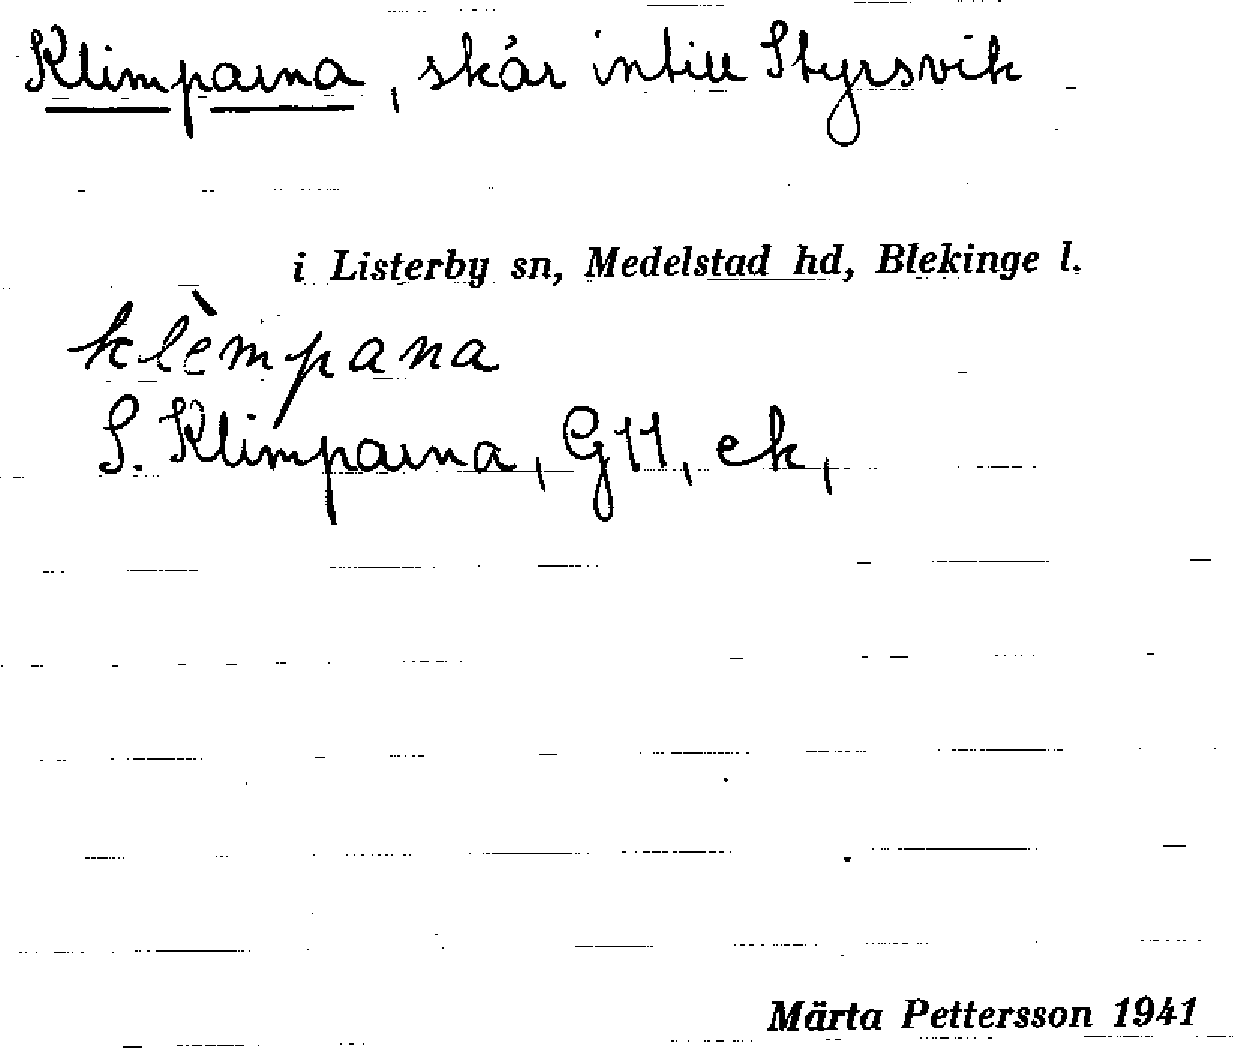 Klimparna, skär intill Styrsvik
i Listerby sn, Medelstad hd, Blekinge l.
klèmpana
S. Klimparna, G11, ek,
Märta Pettersson 1941